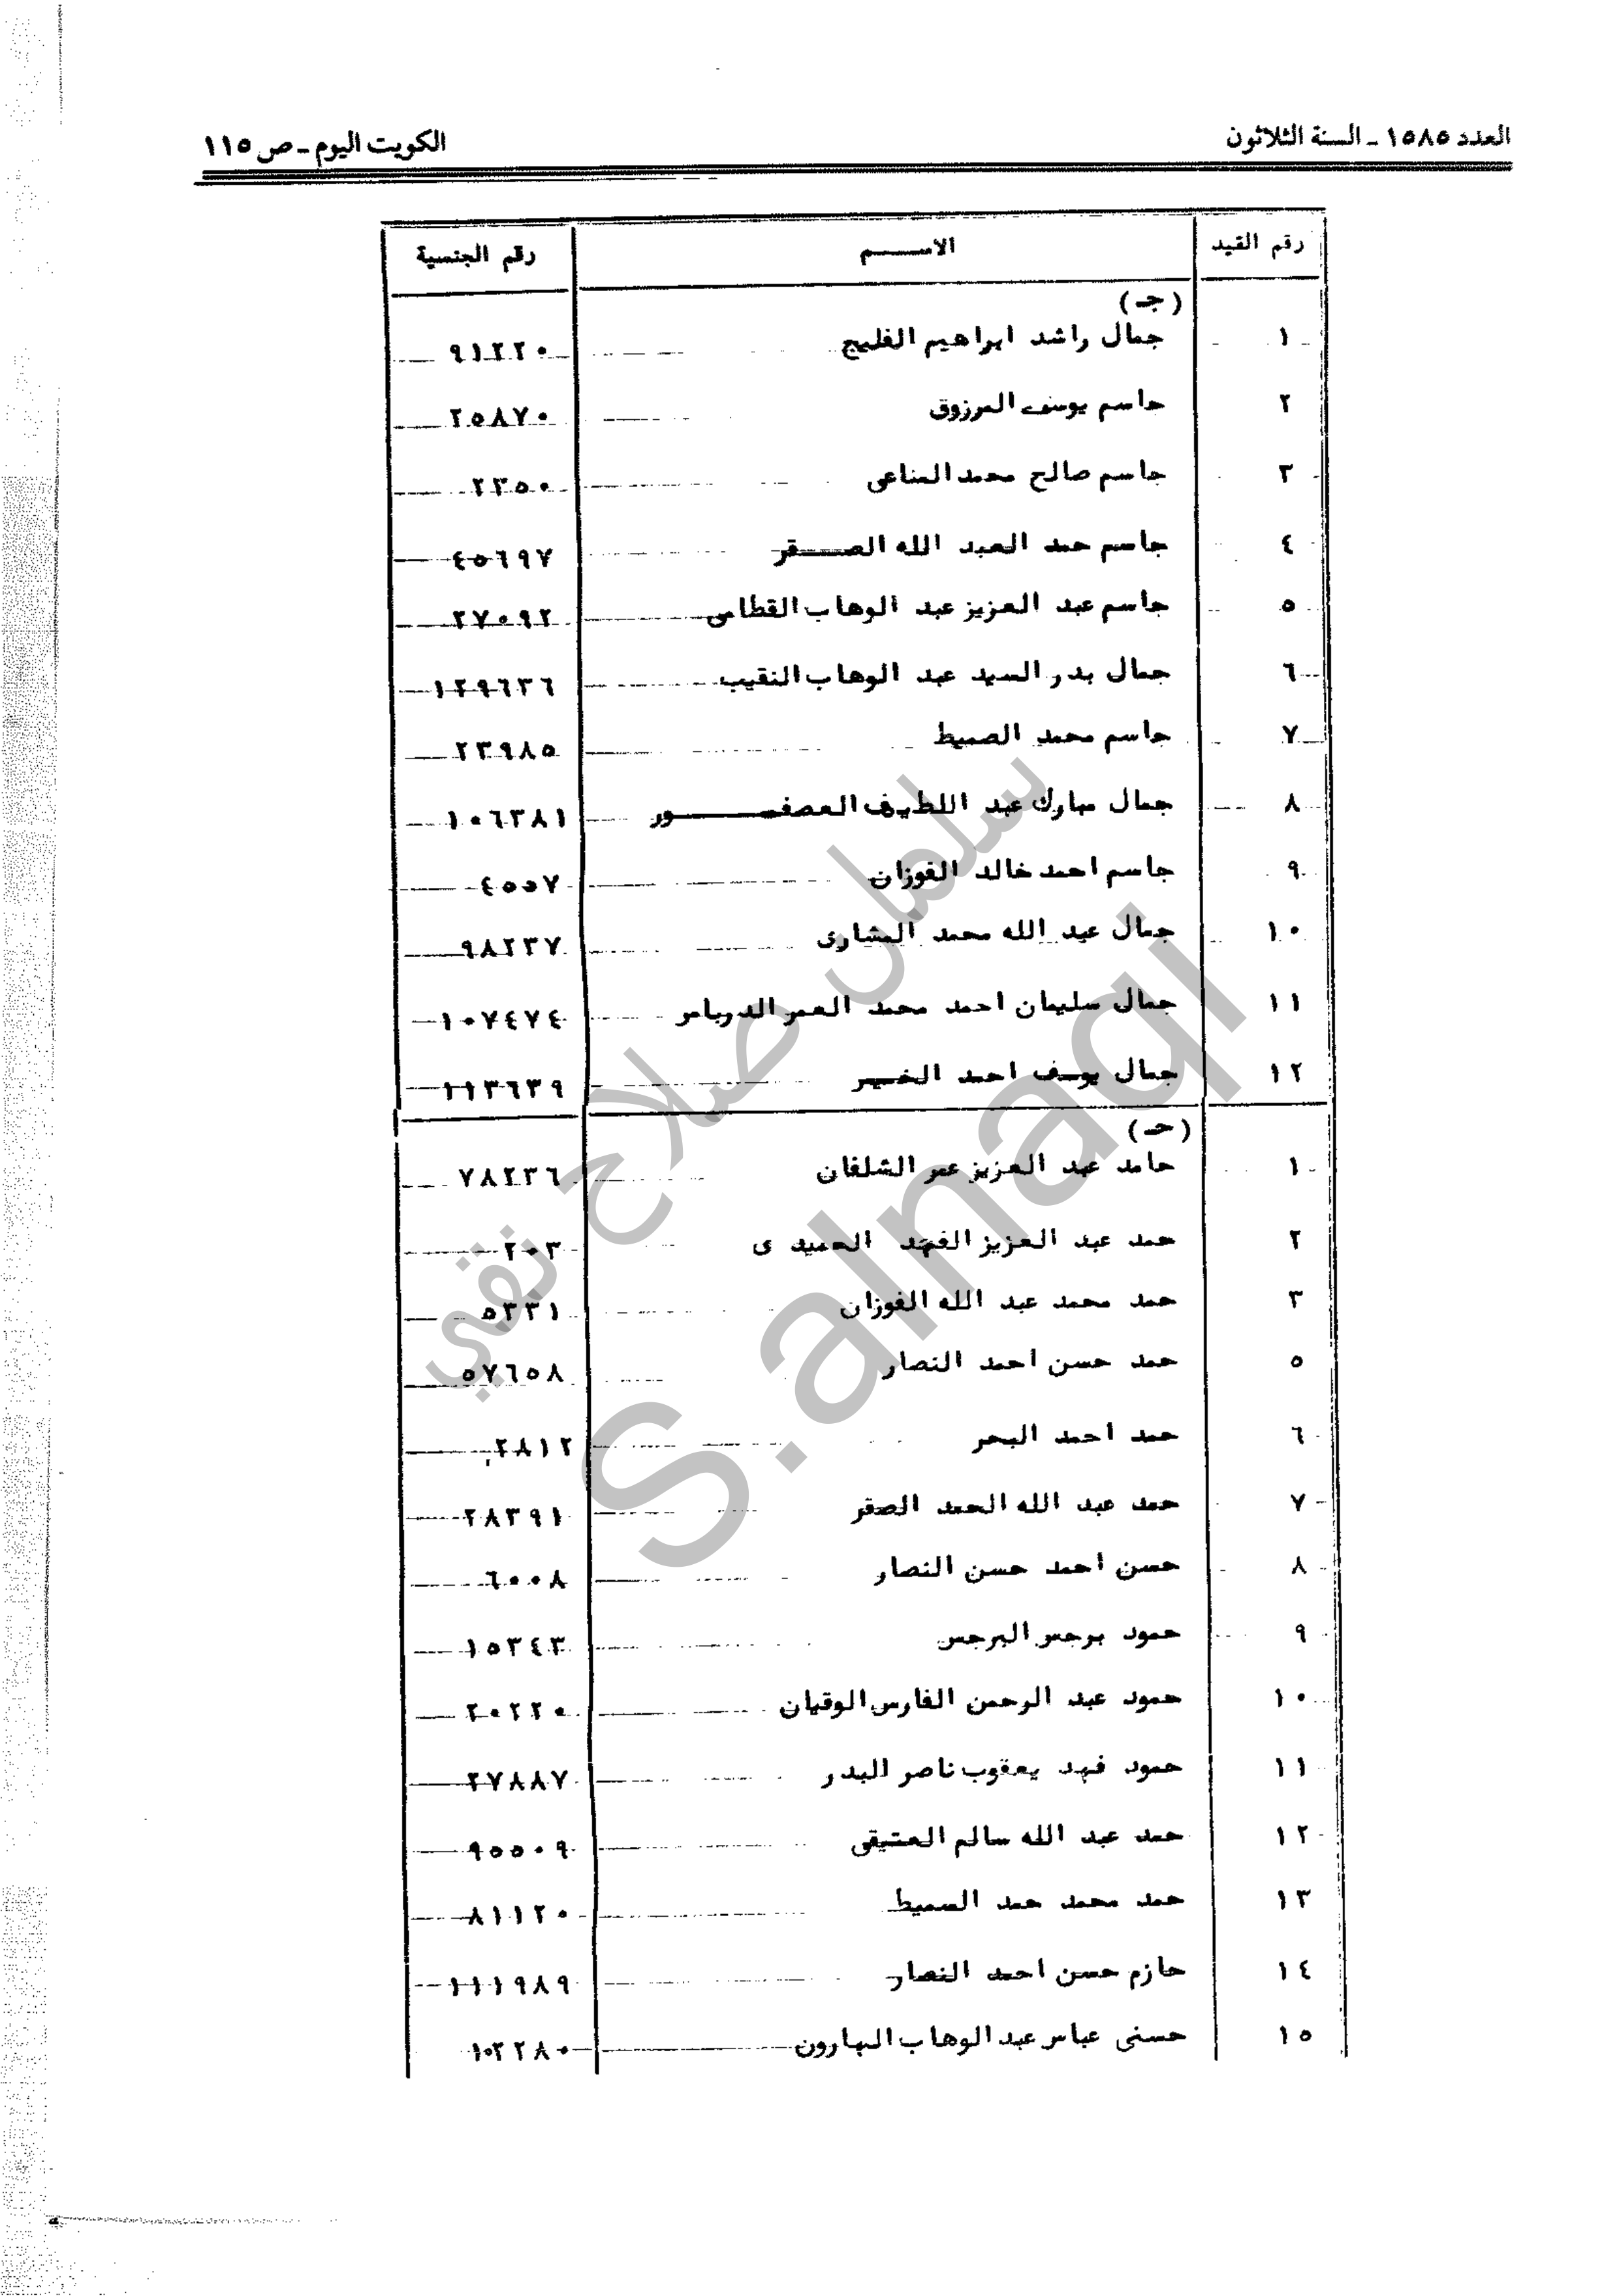 العدد ١٥٨٥ ـ السنة الثلاثون الكويت اليوم ـ ص ١١٥
رقم القيد الاســـم رقم الجنسية
(جـ)
١ جمال راشد ابراهيم الفليج ٩١٢٢٠
٢ جاسم يوسف المرزوق ٢٥٨٧٠
٣ جاسم صالح محمد المناعى ٢٣٥٠
٤ جاسم حمد العبد الله الصــقر ٤٥٦٩٧
٥ جاسم عبد العزيز عبد الوهاب القطامى ٢٧٠٩٢
٦ جمال بدر السيد عبد الوهاب النقيب ١٢٩٦٣٦
٧ جاسم محمد الصميط ٢٣٩٨٥
٨ جمال مبارك عبد اللطيف العصفـــور ١٠٦٣٨١
٩ جاسم احمد خالد الفوزان ٤٥٥٧
١٠ جمال عبد الله محمد المشارى ٩٨٢٣٧
١١ جمال سليمان احمد محمد العمر الدرباس ١٠٧٤٧٤
١٢ جمال يوسف احمد الخـير ١١٣٦٣٩
(حـ)
١ حامد عبد العزيز عمر الشلفان ٧٨٢٣٦
٢ حمد عبد العزيز الفهد الحميدى ٢٠٣
٣ حمد محمد عبد الله الفوزان ٥٣٣١
٥ حمد حسن احمد النصار ٥٧٦٥٨
٦ حمد احمد البحر ٢٨١٢
٧ حمد عبد الله الحمد الصقر ٢٨٣٩١
٨ حسن احمد حسن النصار ٦٠٠٨
٩ حمود برجس البرجس ١٥٣٤٣
١٠ حمود عبد الرحمن الفارس الوقيان ٢٠٢٢٠
١١ حمود فهد يعقوب ناصر البدر ٢٧٨٨٧
١٢ حمد عبد الله سالم العتيقى ٩٥٥٠٩
١٣ حمد محمد حمد السميط ٨١١٢٠
١٤ حازم حسن احمد النصار ١١١٩٨٩
١٥ حسنى عباس عبد الوهاب البارون ١٠٢٢٨٠
سلمان صلاح نقي
S.alnaqi